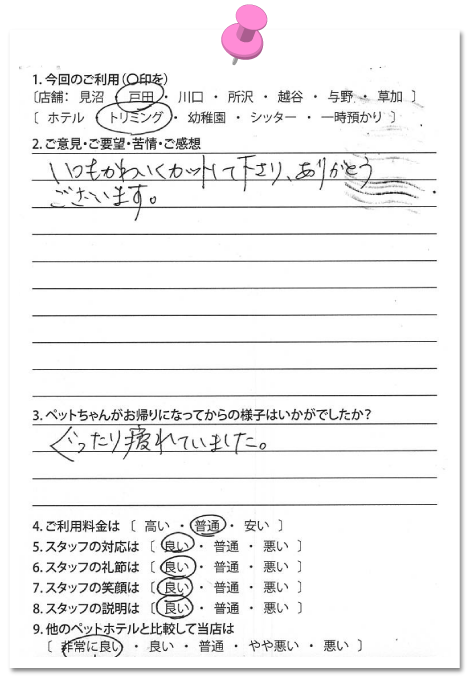 1. 今回のご利用(○印を)
〔店舗: 見沼 ・ 戸田 ・ 川口 ・ 所沢 ・ 越谷 ・ 与野 ・ 草加 〕
〔 ホテル ・ トリミング ・ 幼稚園 ・ シッター ・ 一時預かり 〕
2.ご意見・ご要望・苦情・ご感想
いつもかわいくカットして下さり、ありがとう
ございます。
3. ペットちゃんがお帰りになってからの様子はいかがでしたか?
ぐったり疲れていました。
4. ご利用料金は 〔 高い ・ 普通 ・ 安い 〕
5. スタッフの対応は 〔 良い ・ 普通 ・ 悪い 〕
6. スタッフの礼節は 〔 良い ・ 普通 ・ 悪い 〕
7. スタッフの笑顔は 〔 良い ・ 普通 ・ 悪い 〕
8. スタッフの説明は 〔 良い ・ 普通 ・ 悪い 〕
9. 他のペットホテルと比較して当店は
〔 非常に良い ・ 良い ・ 普通 ・ やや悪い ・ 悪い 〕